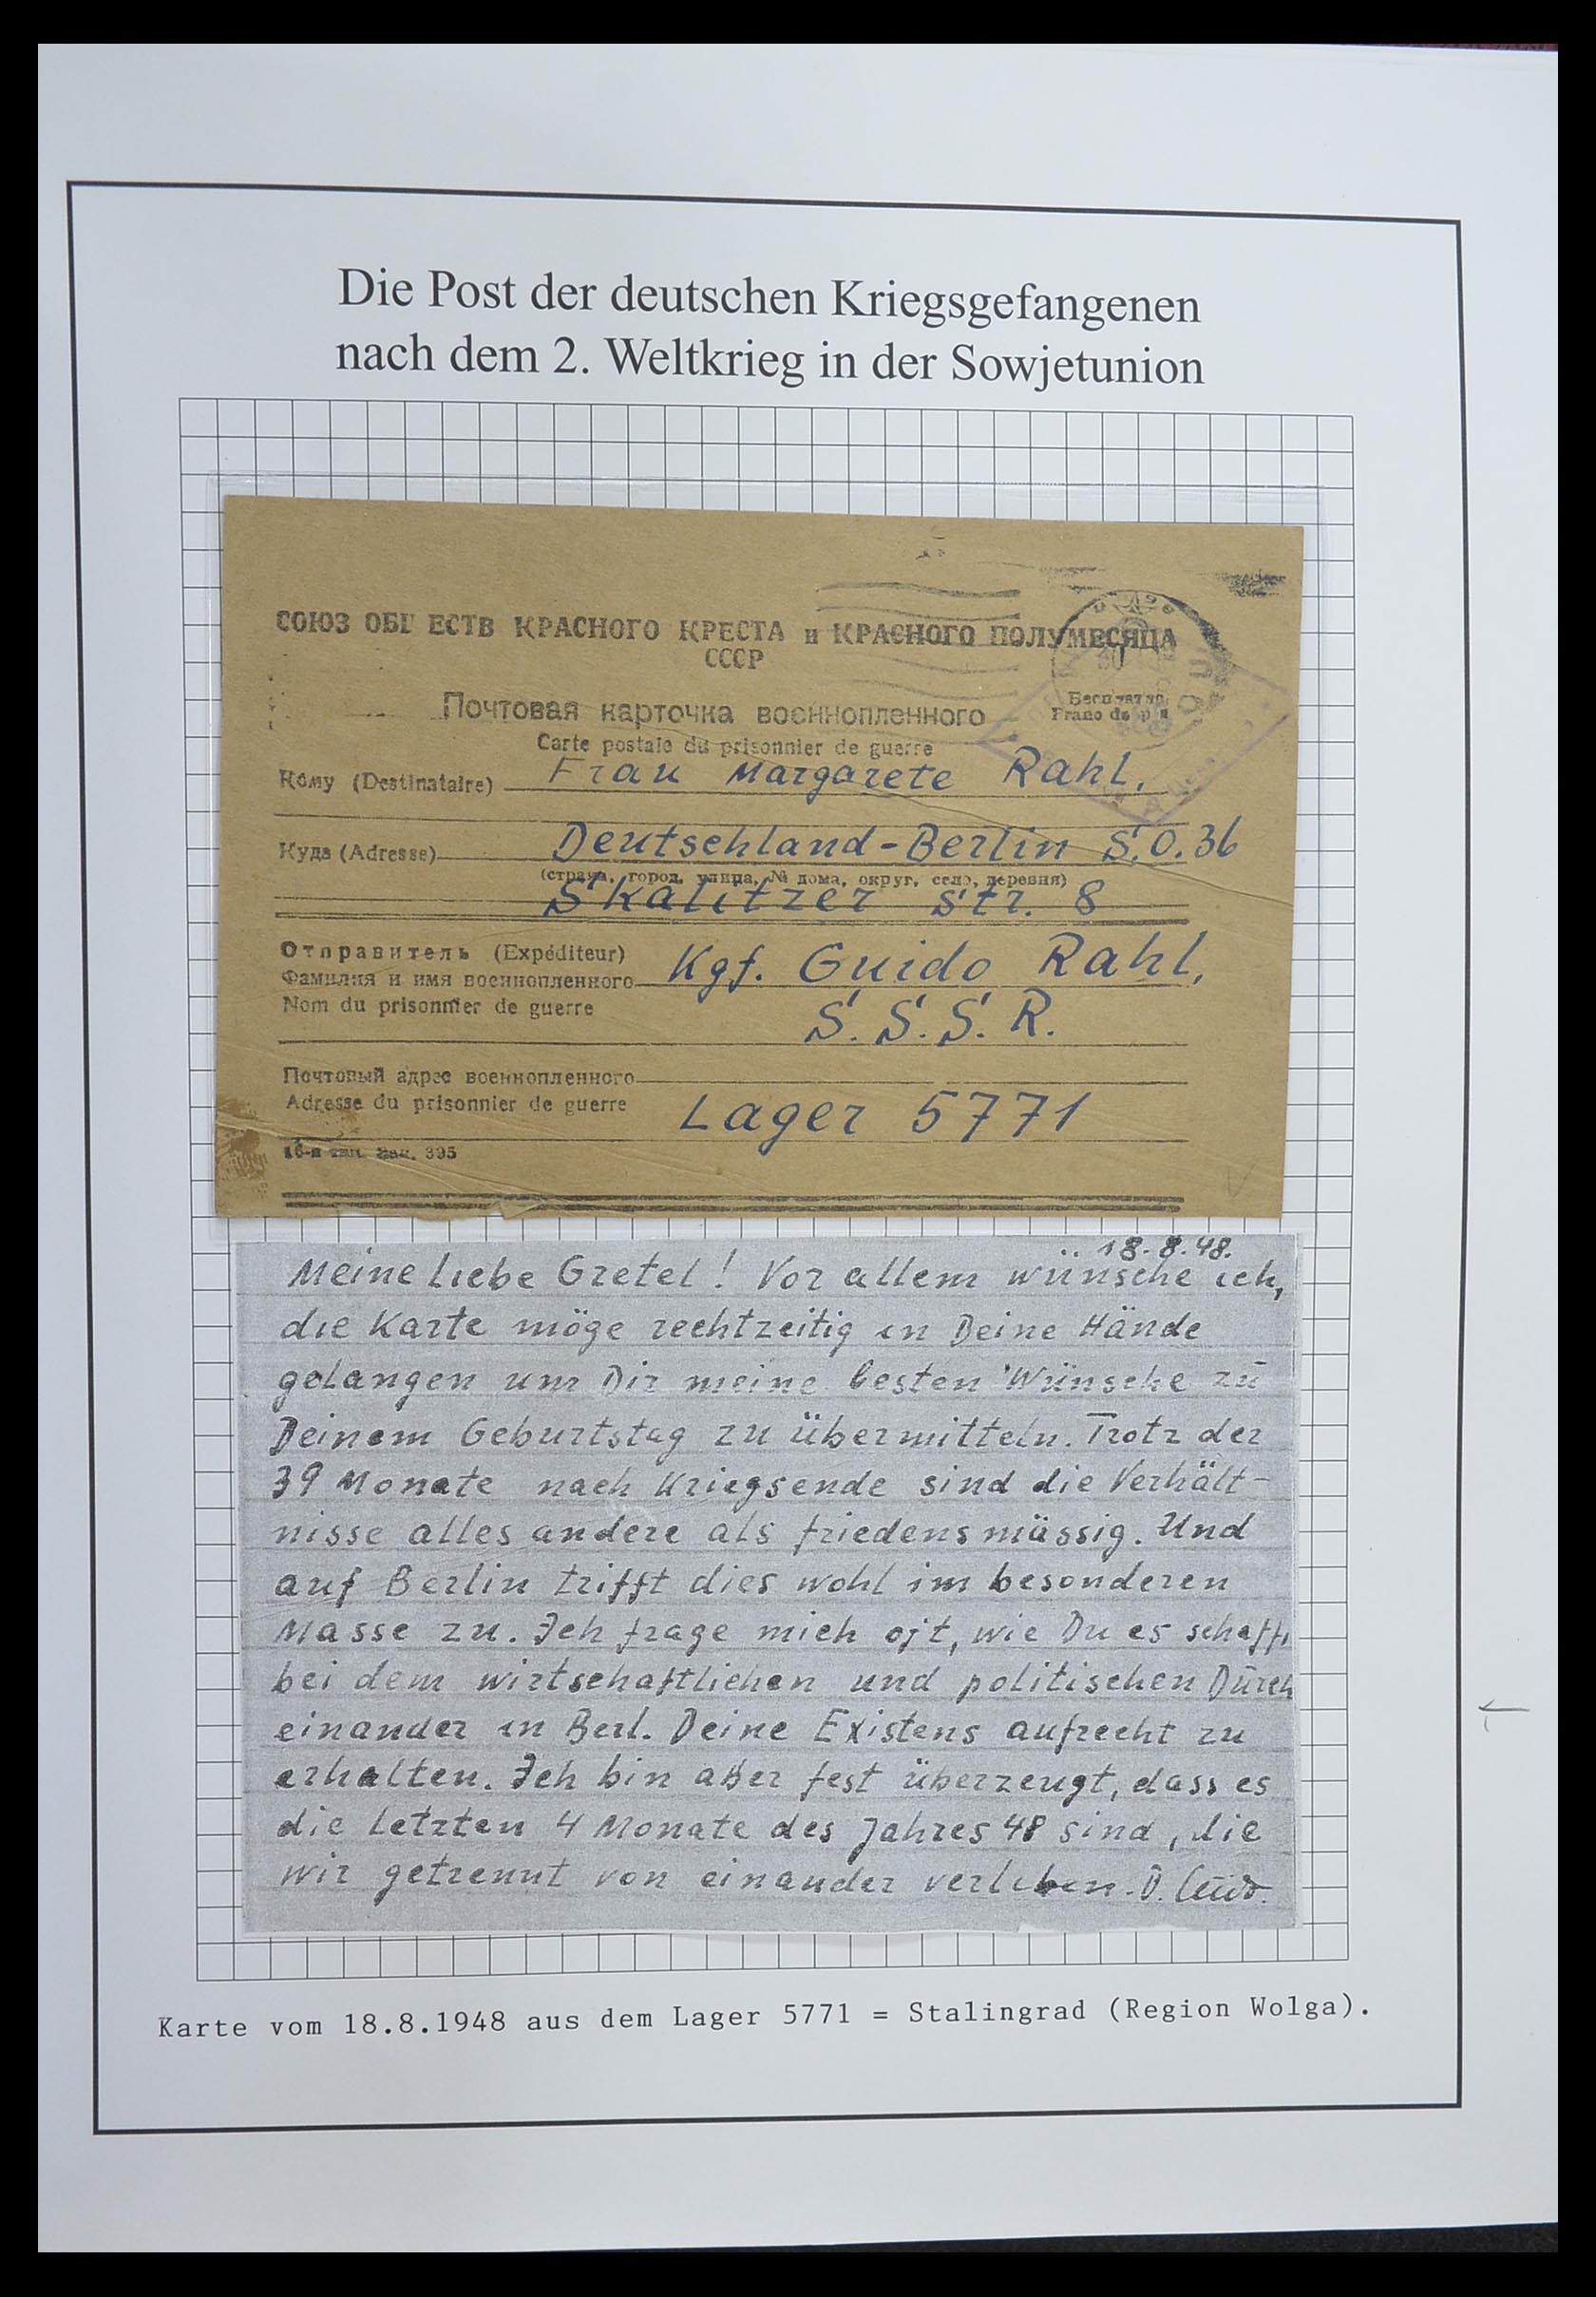 Die Post der deutschen Kriegsgefangenen
nach dem 2. Weltkrieg in der Sowjetunion
СОЮЗ ОБЩЕСТВ КРАСНОГО КРЕСТА и КРАСНОГО ПОЛУМЕСЯЦА
СССР
Почтовая карточка военнопленного
Бесплатно
Franc de port
Carte postale du prisonnier de guerre
Кому (Destinataire) Frau Margarete Rahl,
Куда (Adresse) Deutschland-Berlin S.O.36
(страна, город, улица, № дома, округ, село, деревня)
Skalitzer Str. 8
Отправитель (Expéditeur)
Фамилия и имя военнопленного Kgf. Guido Rahl,
Nom du prisonnier de guerre
S.S.S.R.
Почтовый адрес военнопленного
Adresse du prisonnier de guerre Lager 5771
16-я тип. Зак. 395
18.8.48.
Meine liebe Gretel! Vor allem wünsche ich,
die Karte möge rechtzeitig in Deine Hände
gelangen um Dir meine besten Wünsche zu
Deinem Geburtstag zu übermitteln. Trotz der
39 Monate nach Kriegsende sind die Verhält-
nisse alles andere als friedensmässig. Und
auf Berlin trifft dies wohl im besonderen
Masse zu. Ich frage mich oft, wie Du es schaffs
bei dem wirtschaftlichen und politischen Durch
einander in Berl. Deine Existens aufrecht zu
erhalten. Ich bin aber fest überzeugt, dass es
die letzten 4 Monate des Jahres 48 sind, die
wir getrennt von einander verleben. D. Guido.
Karte vom 18.8.1948 aus dem Lager 5771 = Stalingrad (Region Wolga).